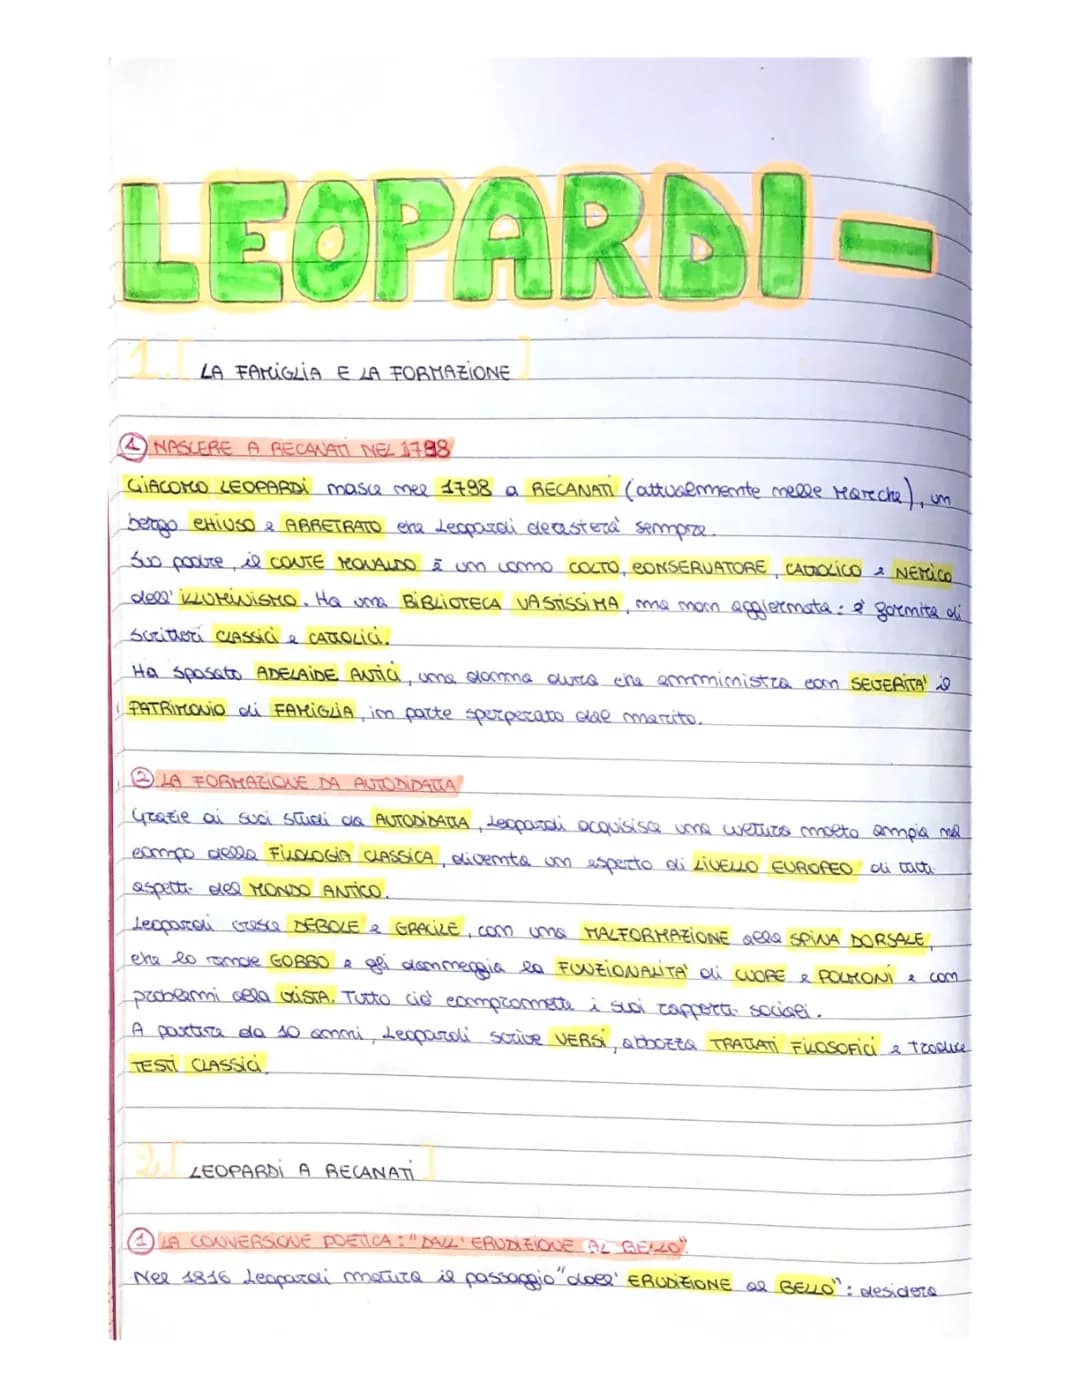 LEOPARDI -
1. [LA FAMIGLIA E LA FORMAZIONE]
1 NASCERE A RECANATI NEL 1798
GIACOMO LEOPARDI nasce nel 1798 a RECANATI (attualmente nelle Marche), un
borgo CHIUSO e ARRETRATO che Leopardi detesterà sempre.
Suo padre, il CONTE MONALDO è un uomo COLTO, CONSERVATORE, CATTOLICO e NEMICO
dell'ILLUMINISMO. Ha una BIBLIOTECA VASTISSIMA, ma non aggiornata: è gremita di
scrittori CLASSICI e CATTOLICI.
Ha sposato ADELAIDE ANTICI, una donna dura che amministra con SEVERITA' il
PATRIMONIO di FAMIGLIA, in parte sperperato dal marito.
2 LA FORMAZIONE DA AUTODIDATTA
Grazie ai suoi studi da AUTODIDATTA, Leopardi acquisisce una cultura molto ampia nel
campo della FILOLOGIA CLASSICA, diventa un esperto di LIVELLO EUROPEO di tutti
aspetti del MONDO ANTICO.
Leopardi cresce DEBOLE e GRACILE, con una MALFORMAZIONE alla SPINA DORSALE,
che lo rende GOBBO e gli danneggia la FUNZIONALITA' di CUORE e POLMONI e con
problemi alla VISTA. Tutto ciò compromette i suoi rapporti sociali.
A partire da 10 anni, Leopardi scrive VERSI, abbozza TRATTATI FILOSOFICI e traduce
TESTI CLASSICI.
2. [LEOPARDI A RECANATI]
1 LA CONVERSIONE POETICA: "DALL'ERUDIZIONE AL BELLO".
Nel 1816 Leopardi matura il passaggio "dall'ERUDIZIONE al BELLO": desidera